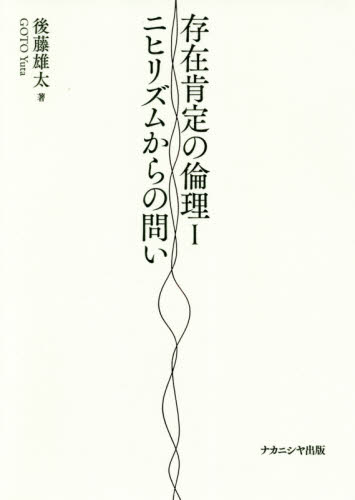 存在肯定の倫理Ⅰ
ニヒリズムからの問い
後藤雄太 著
GOTO Yuta
ナカニシヤ出版